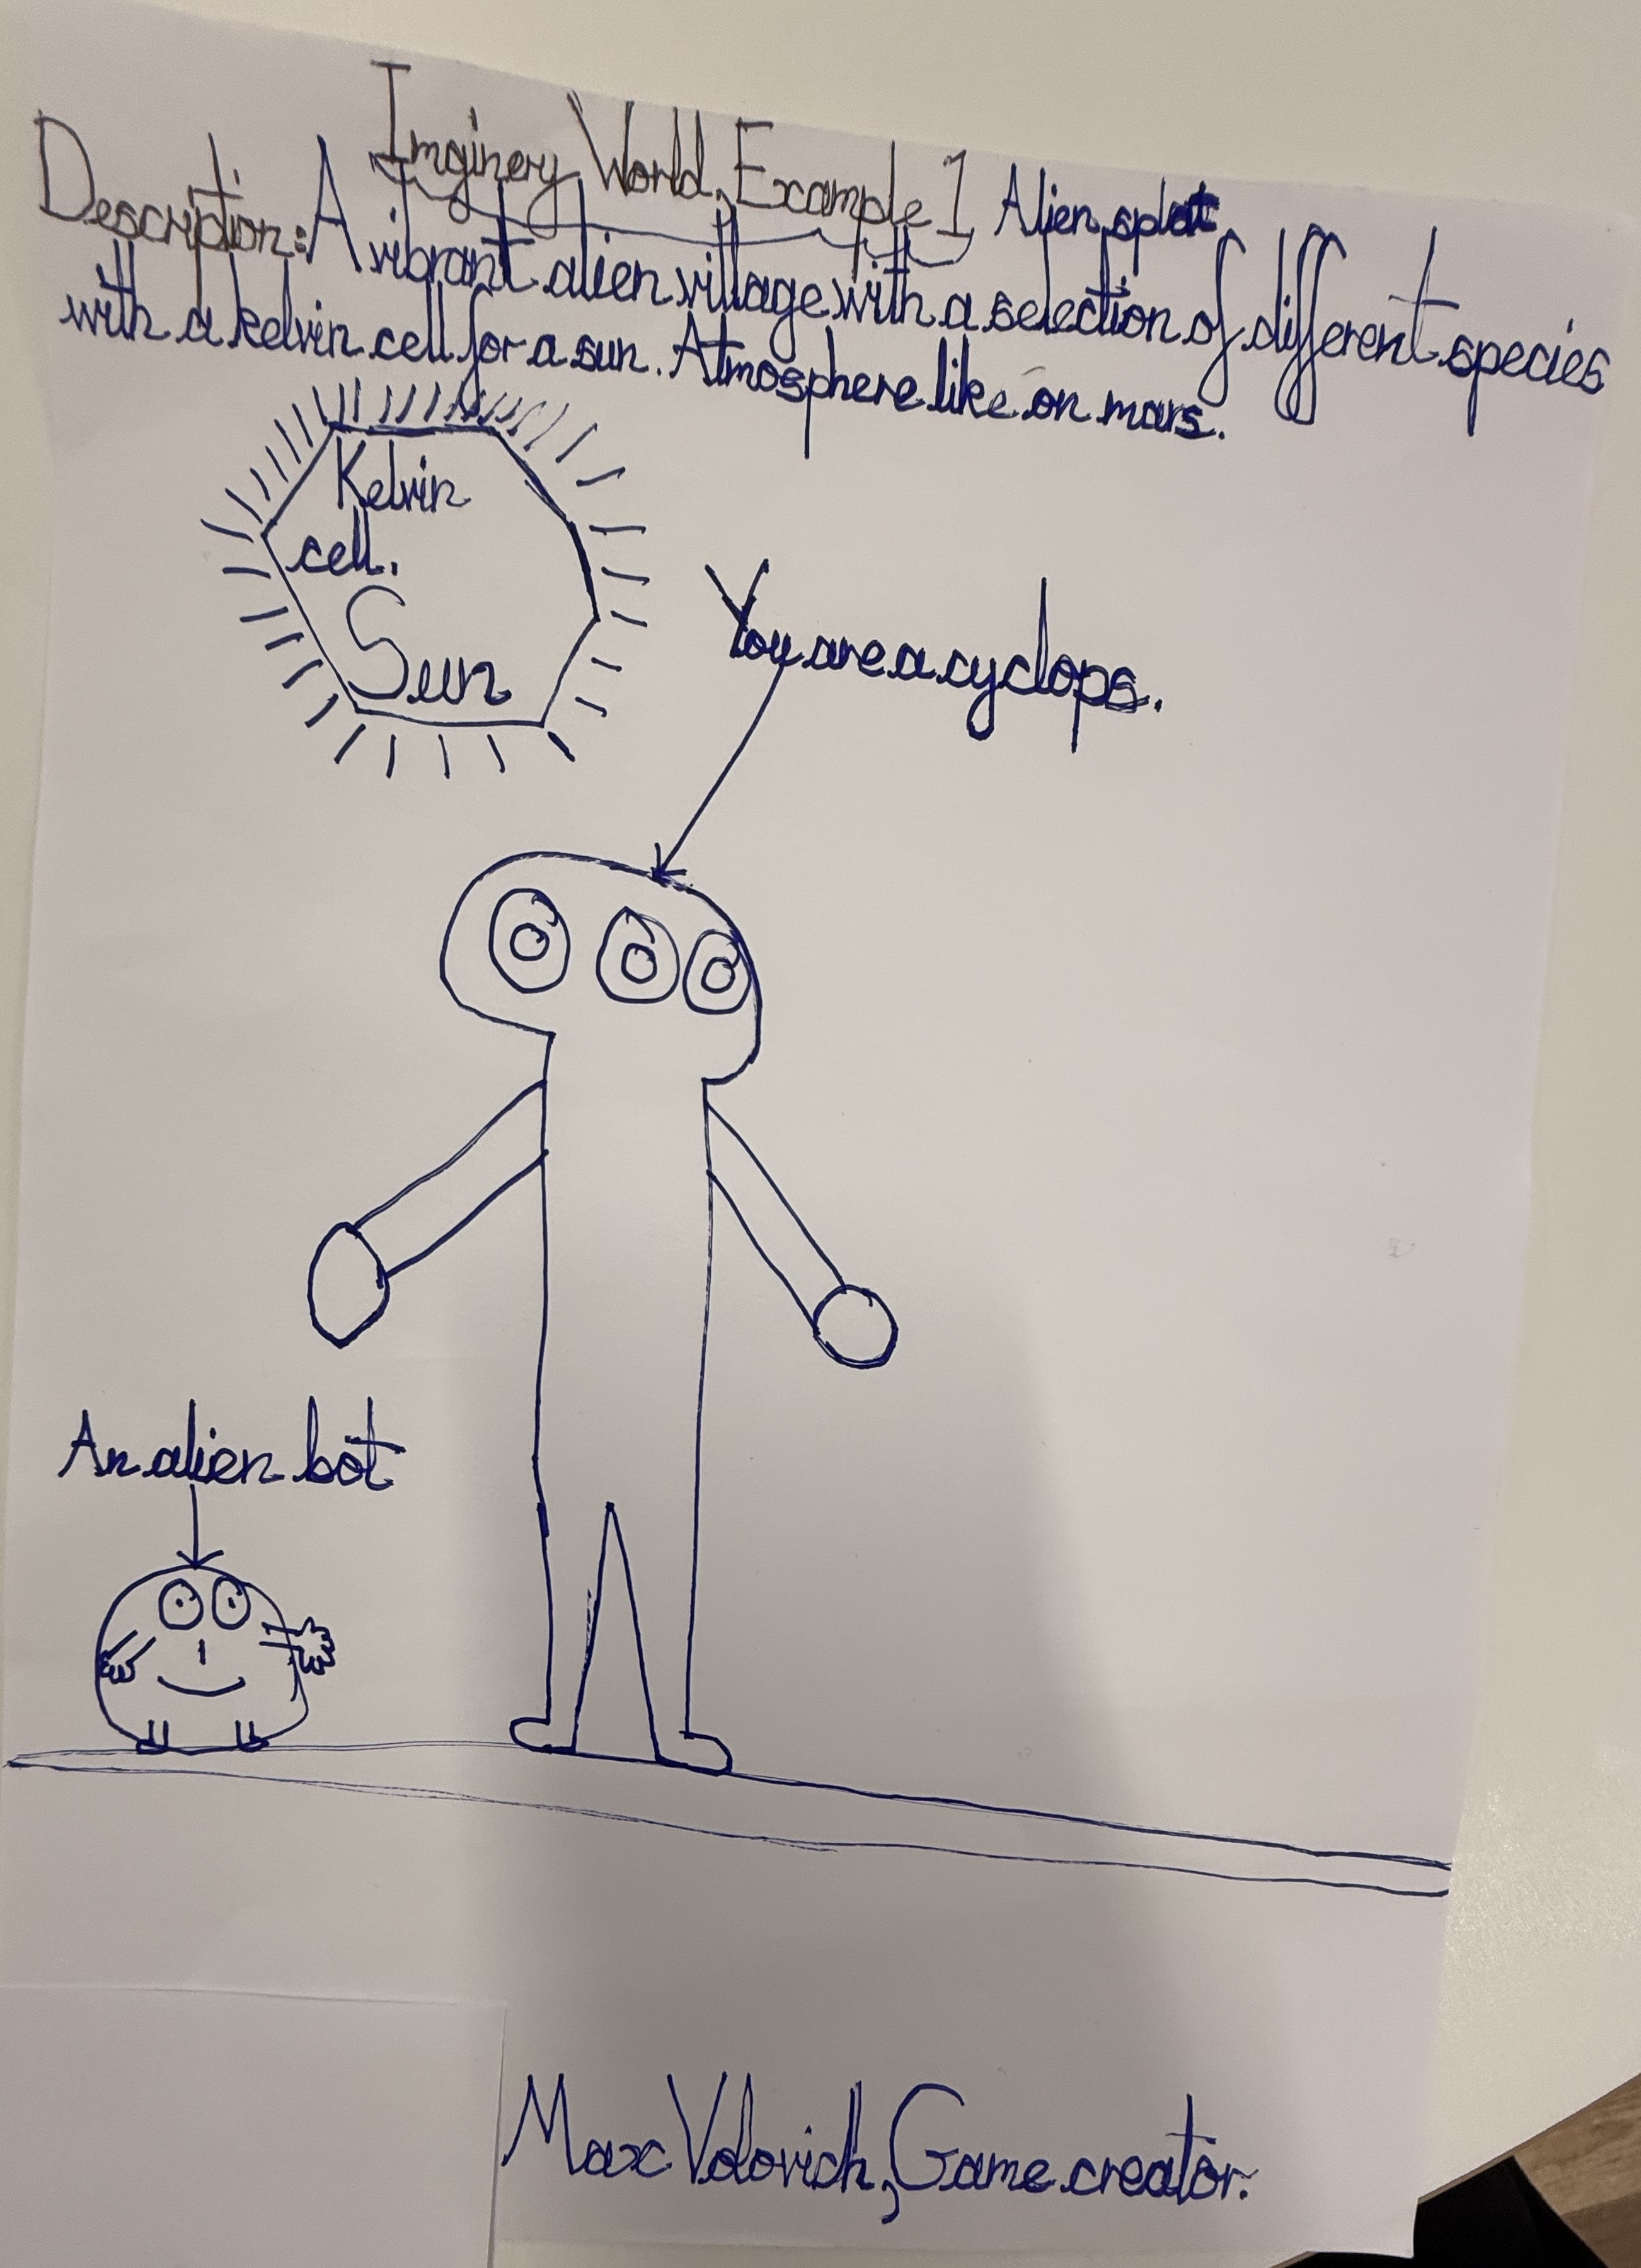 Imginery World, Example 1 Alien splat
Description: A vibrant alien village with a selection of different species
with a kelvin cell for a sun. Atmosphere like on mars.
Kelvin
cell.
Sun
You are a cyclops.
An alien bot
Max Volovich, Game creator.